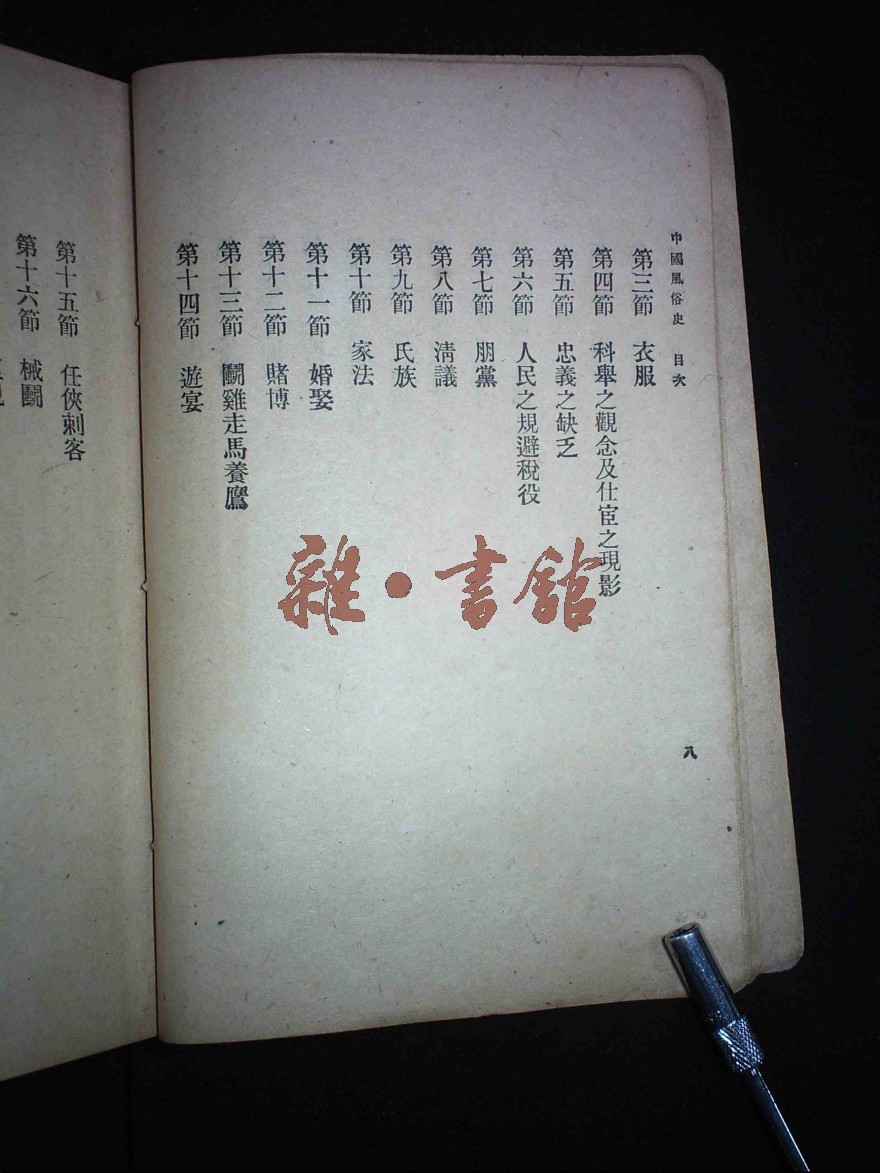 中國風俗史 目次
第三節 衣服
第四節 科舉之觀念及仕宦之現影
第五節 忠義之缺乏
第六節 人民之規避稅役
第七節 朋黨
第八節 淸議
第九節 氏族
第十節 家法
第十一節 婚娶
第十二節 賭博
第十三節 鬭雞走馬養鷹
第十四節 遊宴
八
第十五節 任俠刺客
第十六節 械鬭
雜·書館